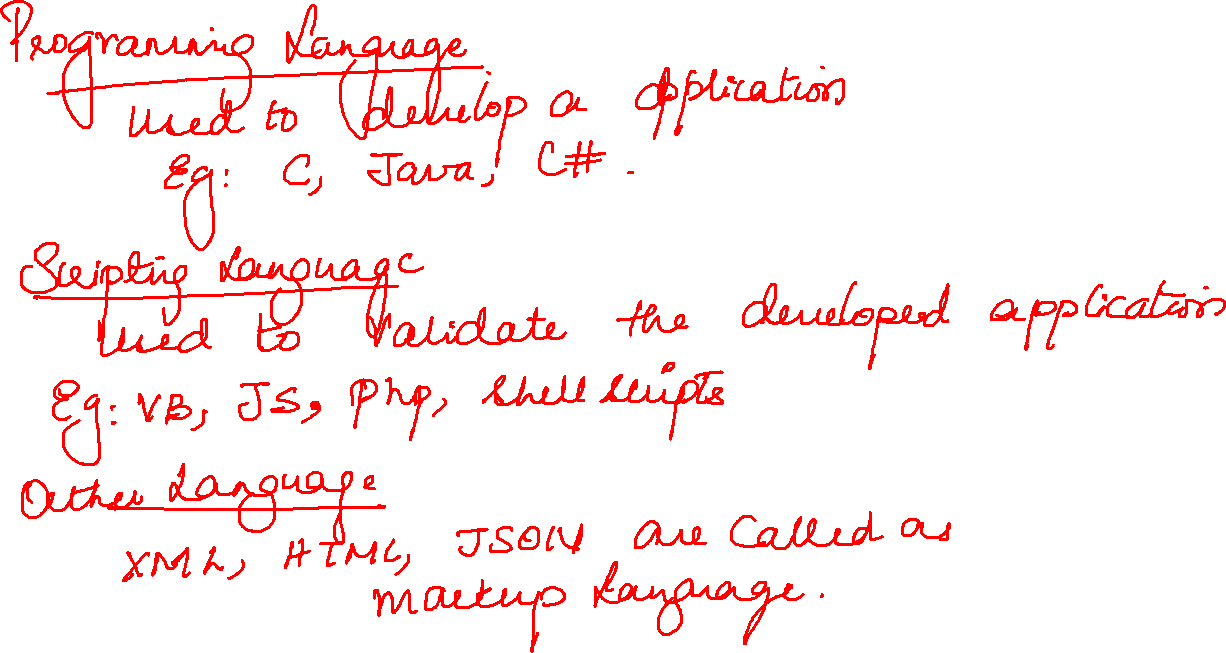 Programming Language
Used to develop a application
Eg: C, Java, C#.
Scripting Language
Used to Validate the developed application
Eg: VB, JS, Php, Shell scripts
Other Language
XML, HTML, JSON are called as
Markup Language.